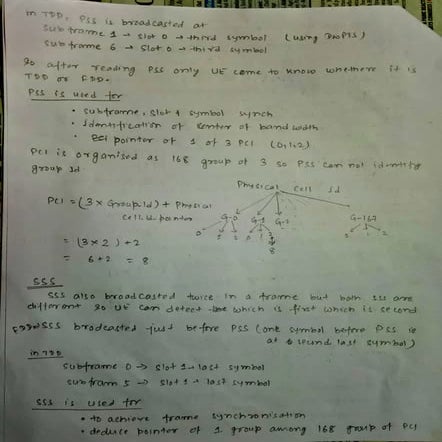 in TDD, PSS is broadcasted at
Subframe 1 → Slot 0 → third symbol (using DwPTS)
Subframe 6 → Slot 0 → third symbol
So after reading PSS only UE come to know whethere it is
TDD or FDD.
PSS is used for
• subframe, slot & symbol synch
• Identification of center of band width
• PCI pointer of 1 of 3 PCI (0,1,2)
PCI is organised as 168 group of 3 so PSS can not identify
group Id
Physical Cell Id
PCI = (3 x Group Id) + Physical
cell Id pointer
G-0 G-1 G-2 G-167
= (3 x 2) + 2
= 6 + 2 = 8
SSS
SSS also broadcasted twice in a frame but both SSS are
different so UE can detect which is first which is second
SSS brodcasted just before PSS (one symbol before PSS ie
at second last symbol)
in TDD
Subframe 0 → Slot 1 → last symbol
Subfram 5 → Slot 1 → last symbol
SSS is used for
• to achieve frame synchronisation
• deduce pointer of 1 group among 168 group of PCI